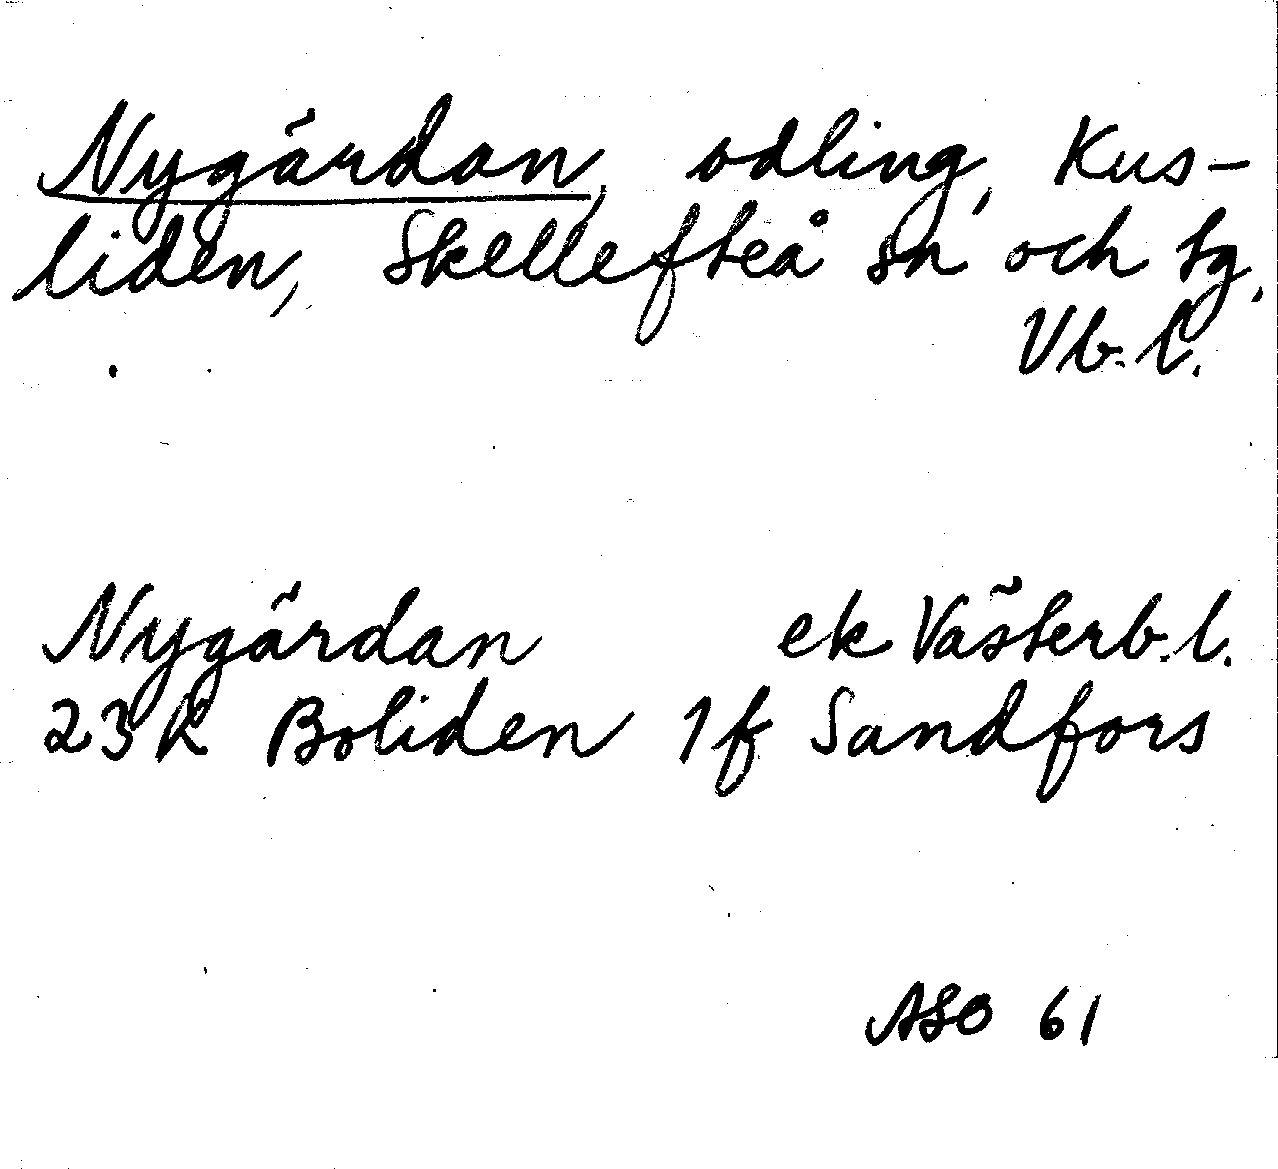 Nygärdan, odling, Kus-
liden, Skellefteå sn och tg,
Vb. l.
Nygärdan ek Västerb. l.
23 K Boliden 1f Sandfors
ASO 61